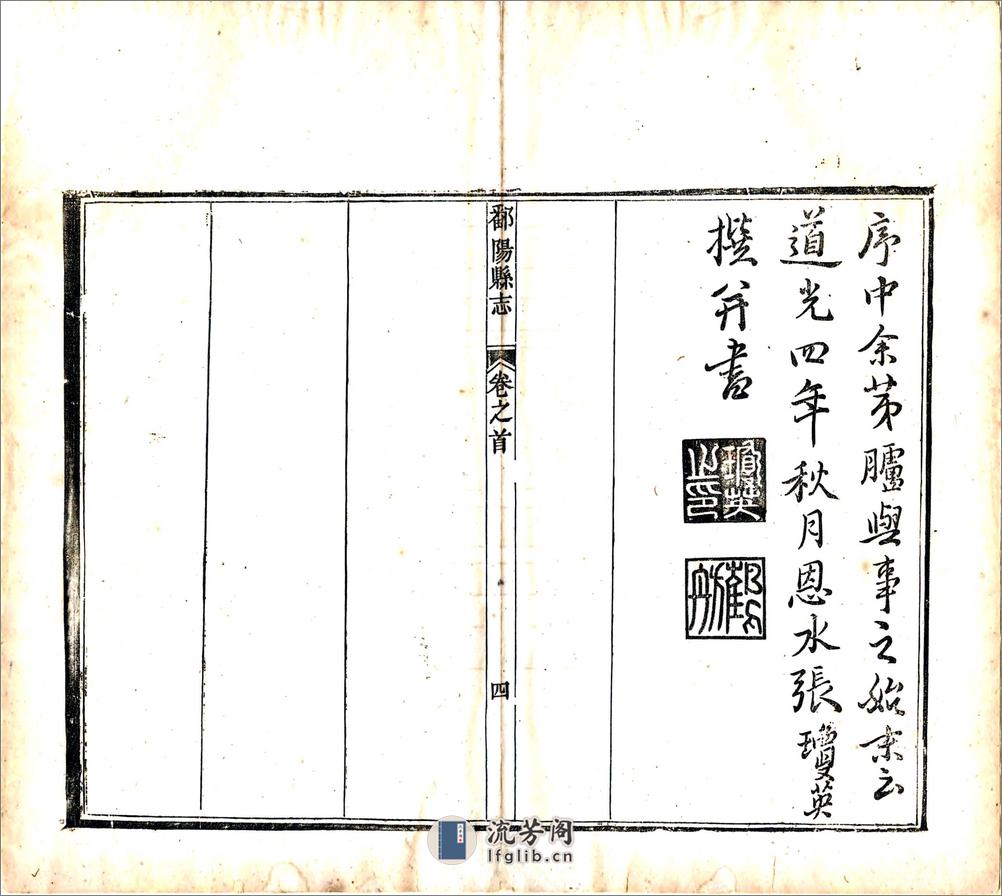 序中余第臚與事之始末云
道光四年秋月恩水張瓊英
撰并書
瓊英之印
鶴舫
鄱陽縣志
卷之首
四
流芳阁
lfglib.cn